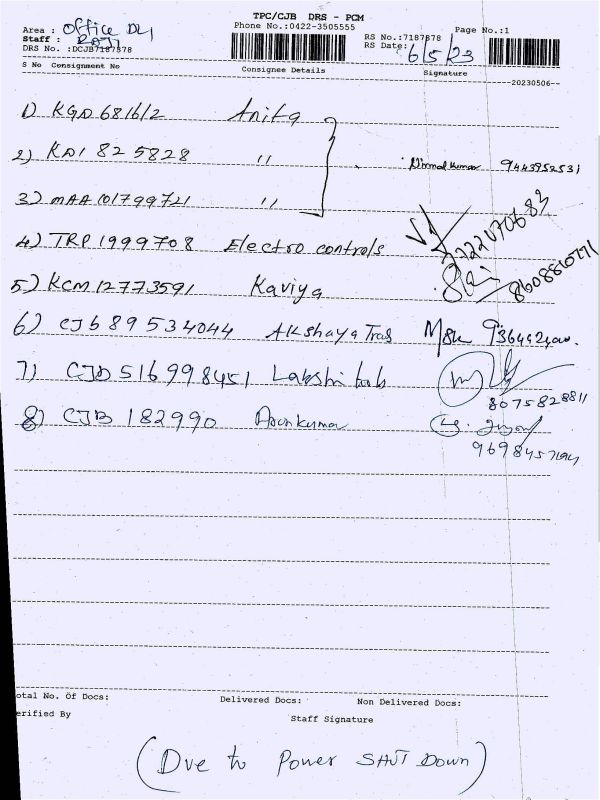 TPC/CJB DRS - PCM
Phone No.:0422-3505555
Area : Office Del
Staff : RAJ
DRS No. :DCJB7187878
RS No.:7187878
RS Date: 6/5/23
Page No.:1
S No Consignment No Consignee Details Signature
--20230506--
1) KGD 681612 Anita
2) KDI 825828 " Nirmal Kumar 9443952531
3) MAA 101799721 "
4) TRP 1999708 Electro controls
5) KCM 12773591 Kaviya 8608810771
6) CJB 89534044 Akshaya Tras
7) CJD 516998451 Lakshi 8075828811
8) CJB 182990 Arunkumar
otal No. Of Docs: Delivered Docs: Non Delivered Docs:
erified By Staff Signature
(Due to Power SHUT Down)